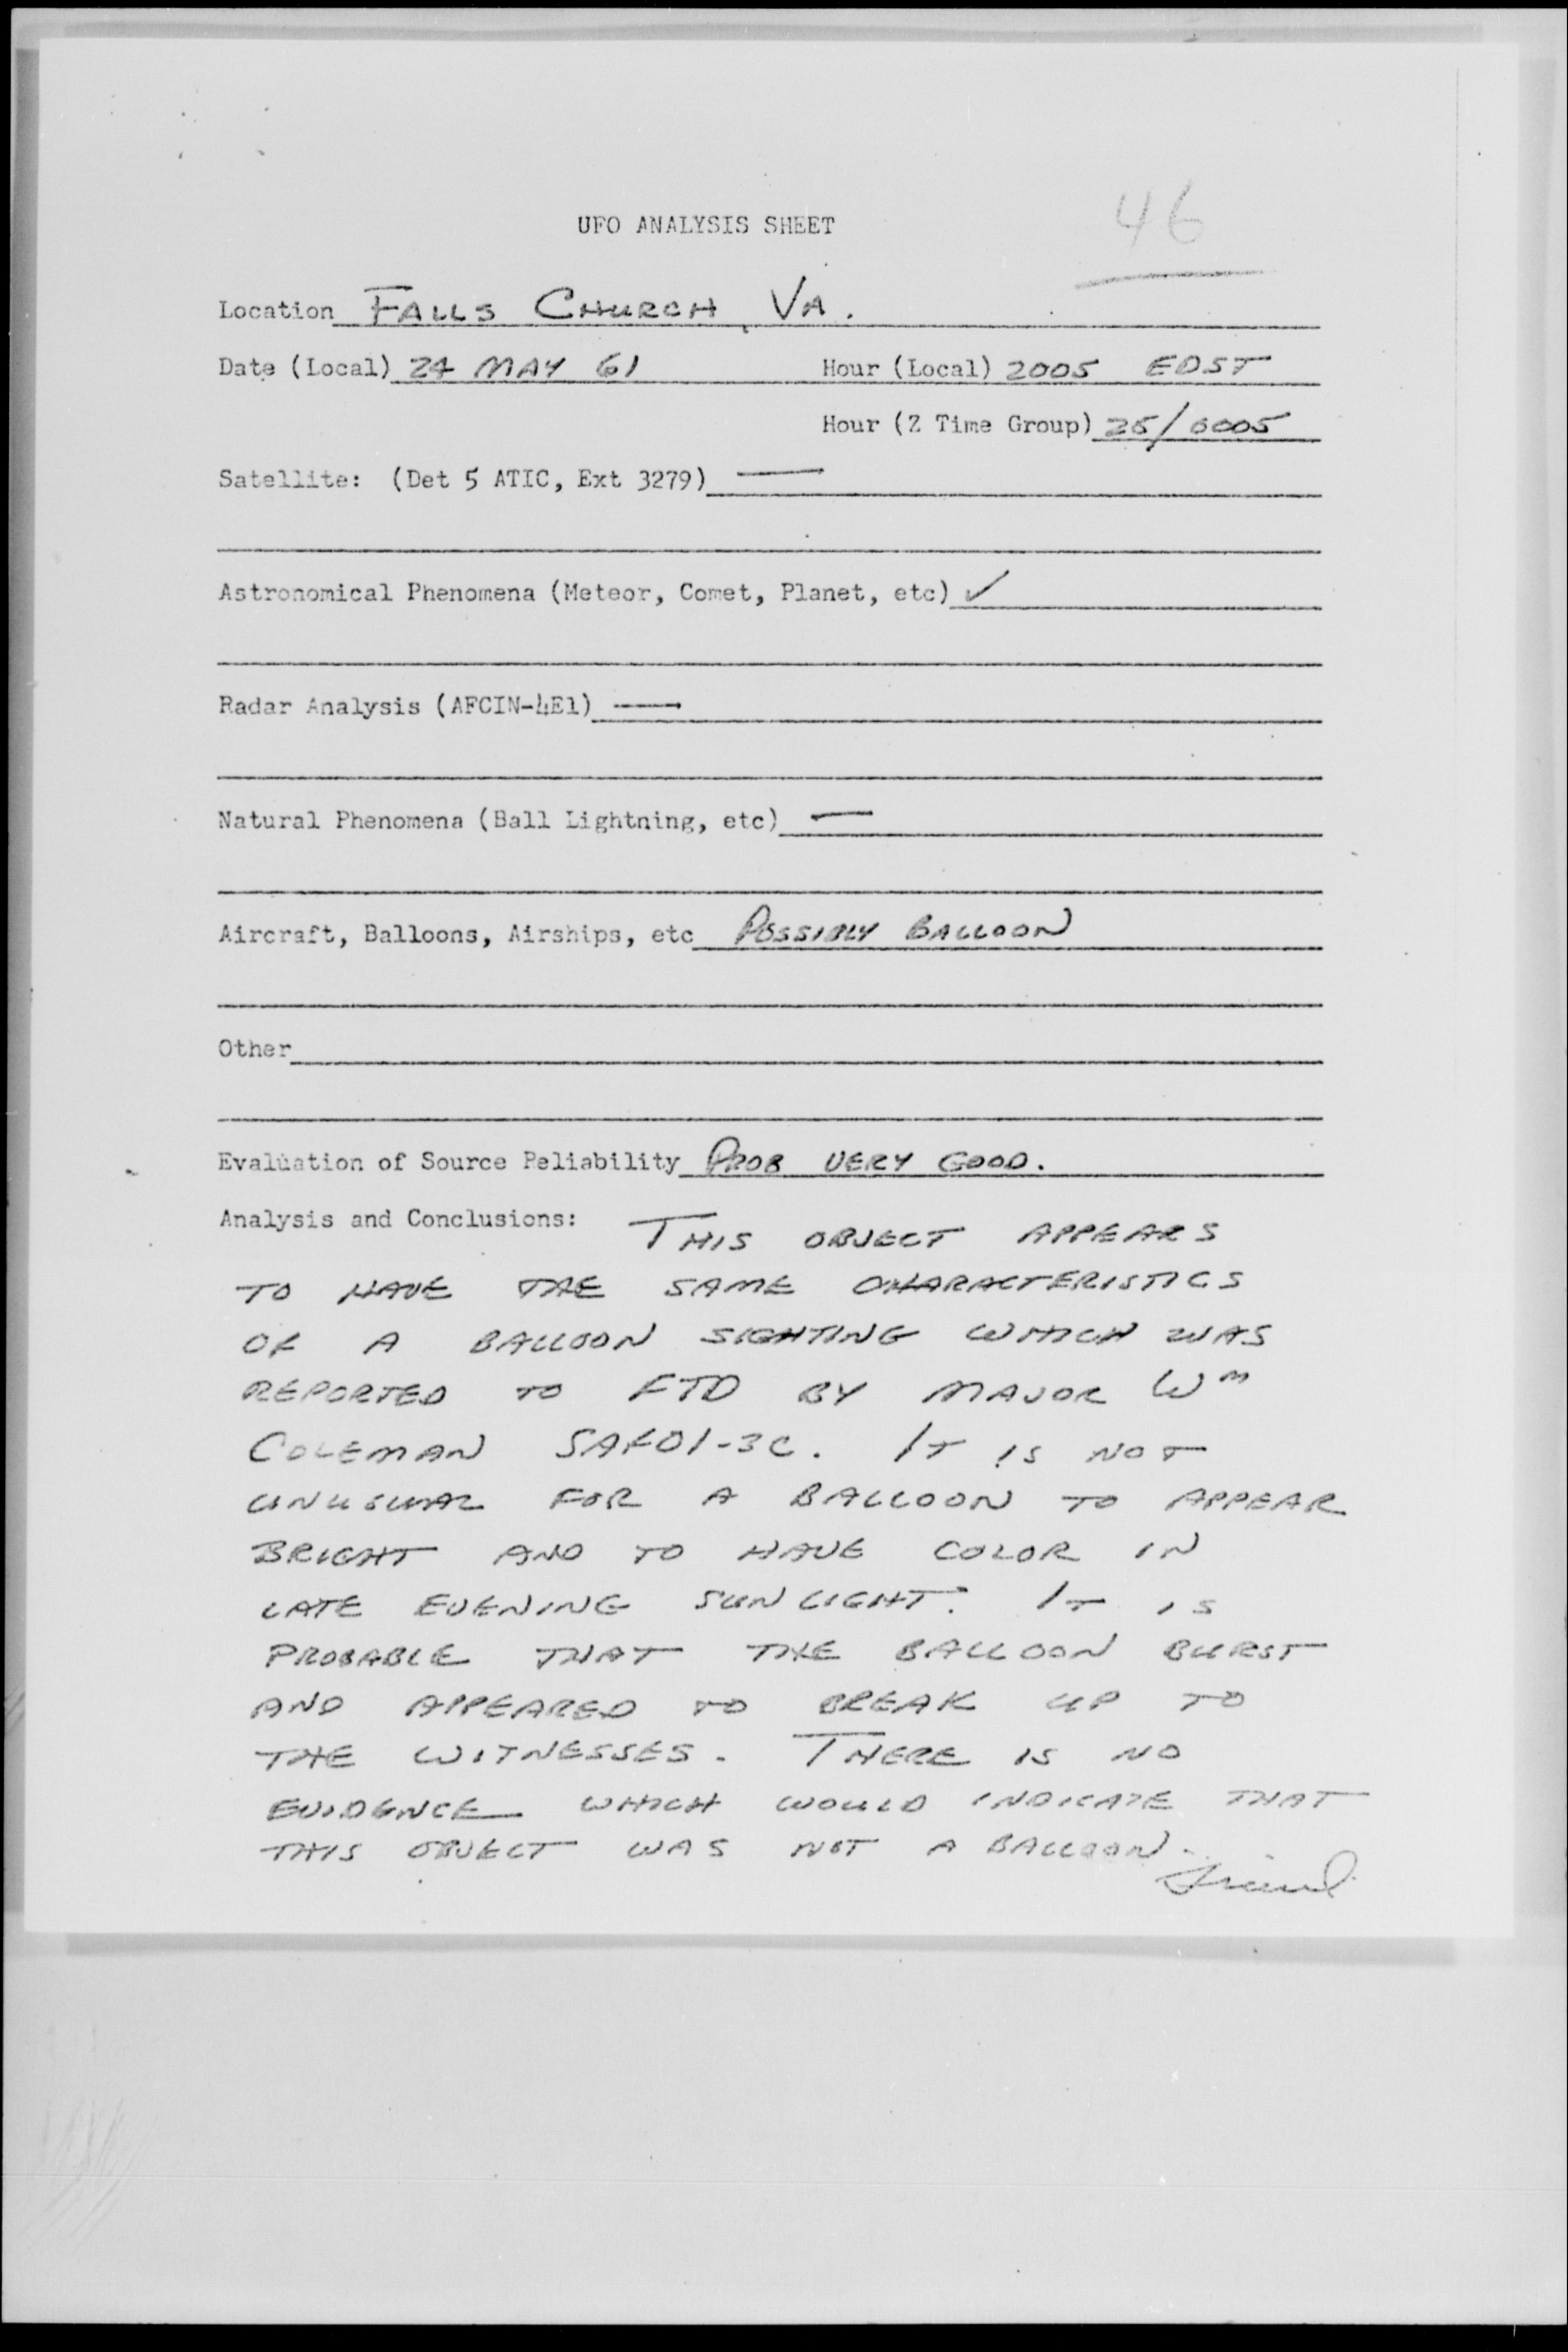 46
UFO ANALYSIS SHEET
Location FALLS CHURCH, VA.
Date (Local) 24 MAY 61 Hour (Local) 2005 EDST
Hour (Z Time Group) 25/0005
Satellite: (Det 5 ATIC, Ext 3279) —
Astronomical Phenomena (Meteor, Comet, Planet, etc) ✓
Radar Analysis (AFCIN-4E1) —
Natural Phenomena (Ball Lightning, etc) —
Aircraft, Balloons, Airships, etc POSSIBLY BALLOON
Other
Evaluation of Source Reliability PROB VERY GOOD.
Analysis and Conclusions: THIS OBJECT APPEARS
TO HAVE THE SAME CHARACTERISTICS
OF A BALLOON SIGHTING WHICH WAS
REPORTED TO FTD BY MAJOR Wm
COLEMAN SAFOI-3C. IT IS NOT
UNUSUAL FOR A BALLOON TO APPEAR
BRIGHT AND TO HAVE COLOR IN
LATE EVENING SUNLIGHT. IT IS
PROBABLE THAT THE BALLOON BURST
AND APPEARED TO BREAK UP TO
THE WITNESSES. THERE IS NO
EVIDENCE WHICH WOULD INDICATE THAT
THIS OBJECT WAS NOT A BALLOON.